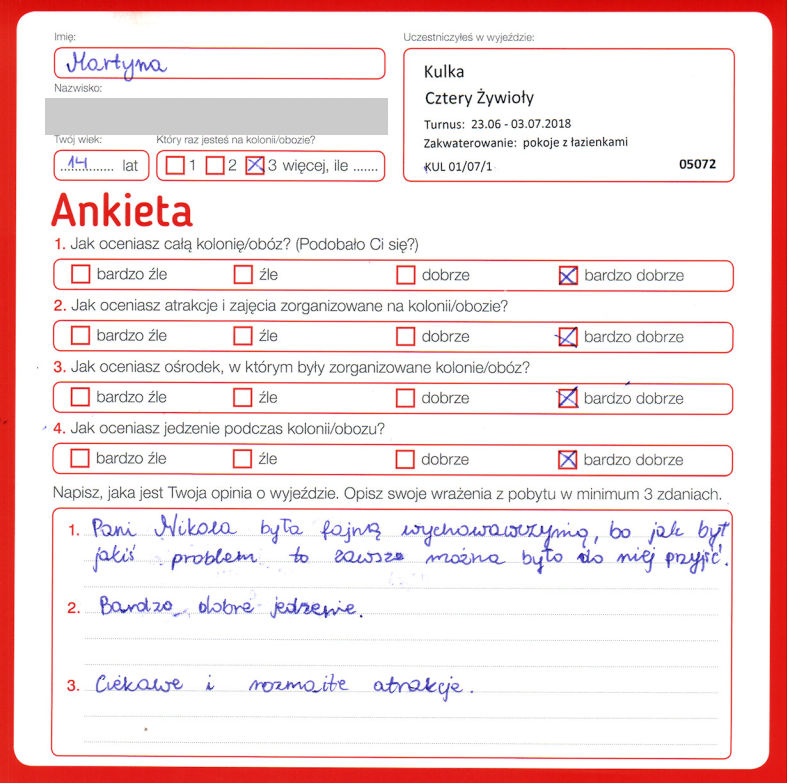 Imię:
Martyna
Nazwisko:
Twój wiek:
Który raz jesteś na kolonii/obozie?
14 lat
1 2 3 więcej, ile .......
Uczestniczyłeś w wyjeździe:
Kulka
Cztery Żywioły
Turnus: 23.06 - 03.07.2018
Zakwaterowanie: pokoje z łazienkami
KUL 01/07/1 05072
Ankieta
1. Jak oceniasz całą kolonię/obóz? (Podobało Ci się?)
bardzo źle źle dobrze bardzo dobrze
2. Jak oceniasz atrakcje i zajęcia zorganizowane na kolonii/obozie?
bardzo źle źle dobrze bardzo dobrze
3. Jak oceniasz ośrodek, w którym były zorganizowane kolonie/obóz?
bardzo źle źle dobrze bardzo dobrze
4. Jak oceniasz jedzenie podczas kolonii/obozu?
bardzo źle źle dobrze bardzo dobrze
Napisz, jaka jest Twoja opinia o wyjeździe. Opisz swoje wrażenia z pobytu w minimum 3 zdaniach.
1. Pani Nikola była fajną wychowawczynią, bo jak był
jakiś problem to zawsze można było do niej przyjść.
2. Bardzo dobre jedzenie.
3. Ciekawe i rozmaite atrakcje.